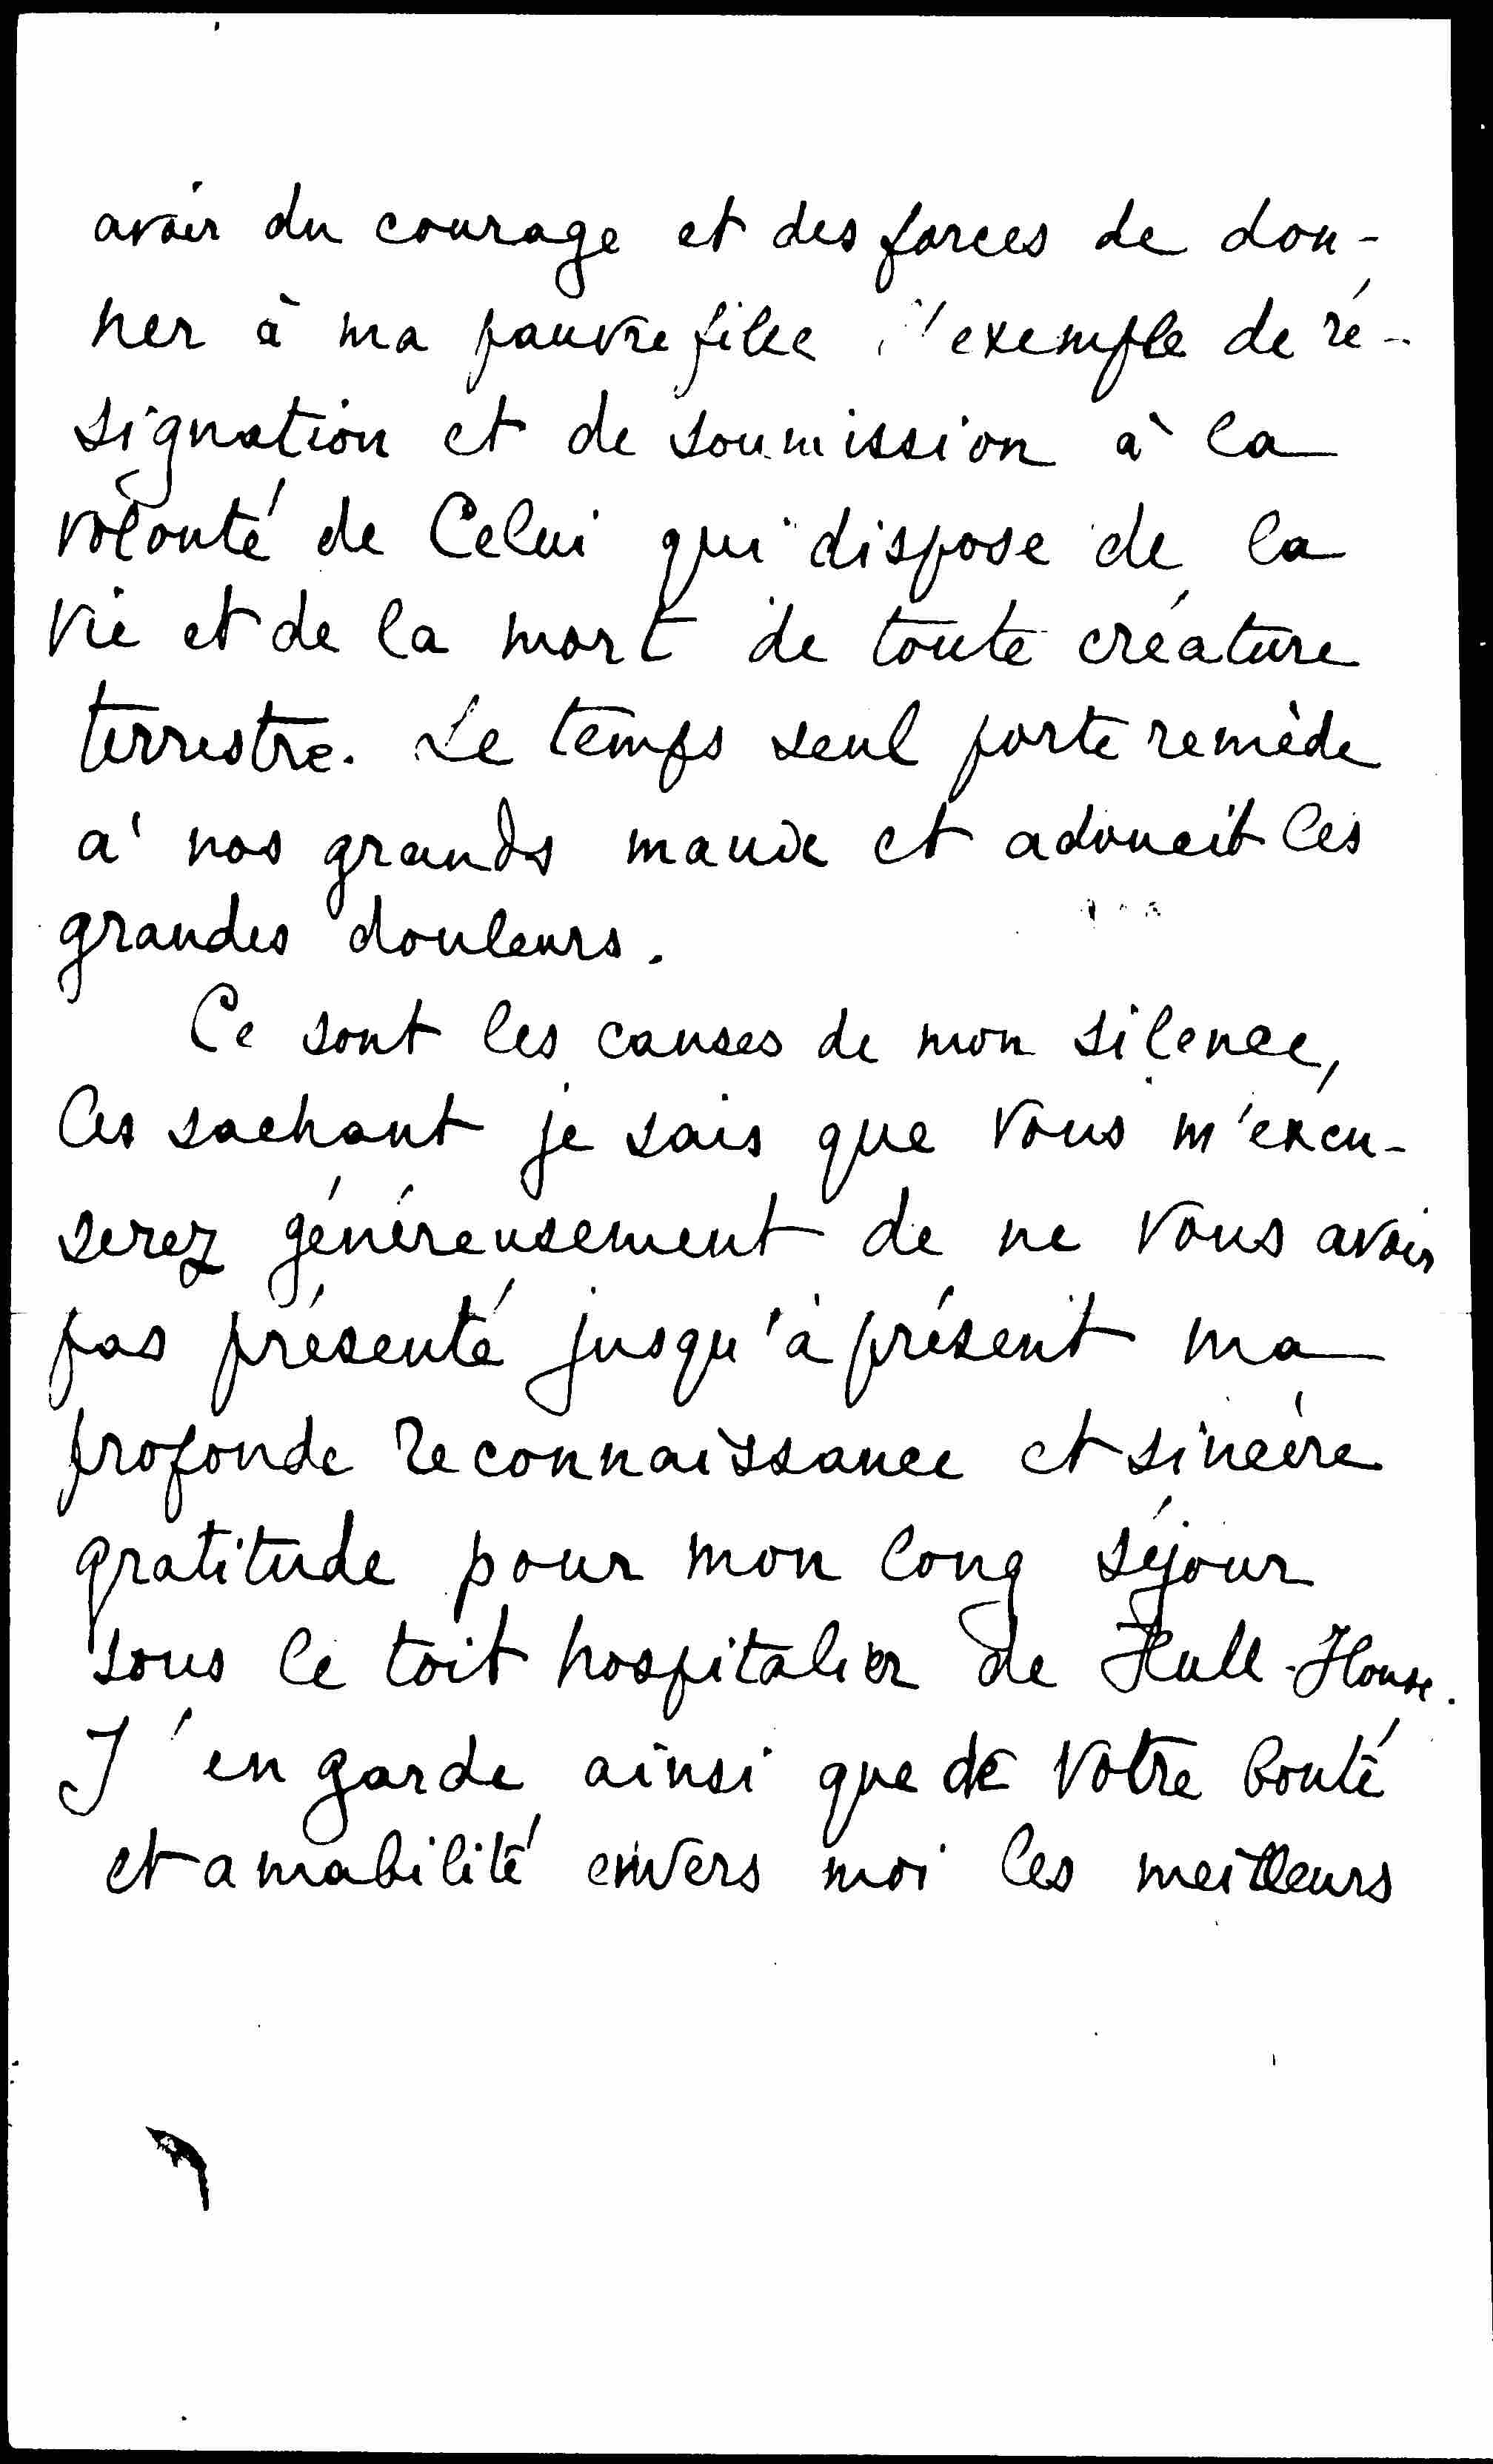 avoir du courage et des forces de don-
ner à ma pauvre fille l'exemple de ré-
signation et de soumission à la
volonté de Celui qui dispose de la
vie et de la mort de toute créature
terrestre. Le temps seul porte remède
a' nos grands maux et adoucit les
grandes douleurs.
Ce sont les causes de mon silence,
les sachant je sais que Vous m'excu-
serez généreusement de ne Vous avoir
pas présenté jusqu'à présent ma
profonde reconnaissance et sincère
gratitude pour mon long séjour
sous le toit hospitalier de Hull-House.
J'en garde ainsi que de Votre bonté
et amabilité envers moi les meilleurs